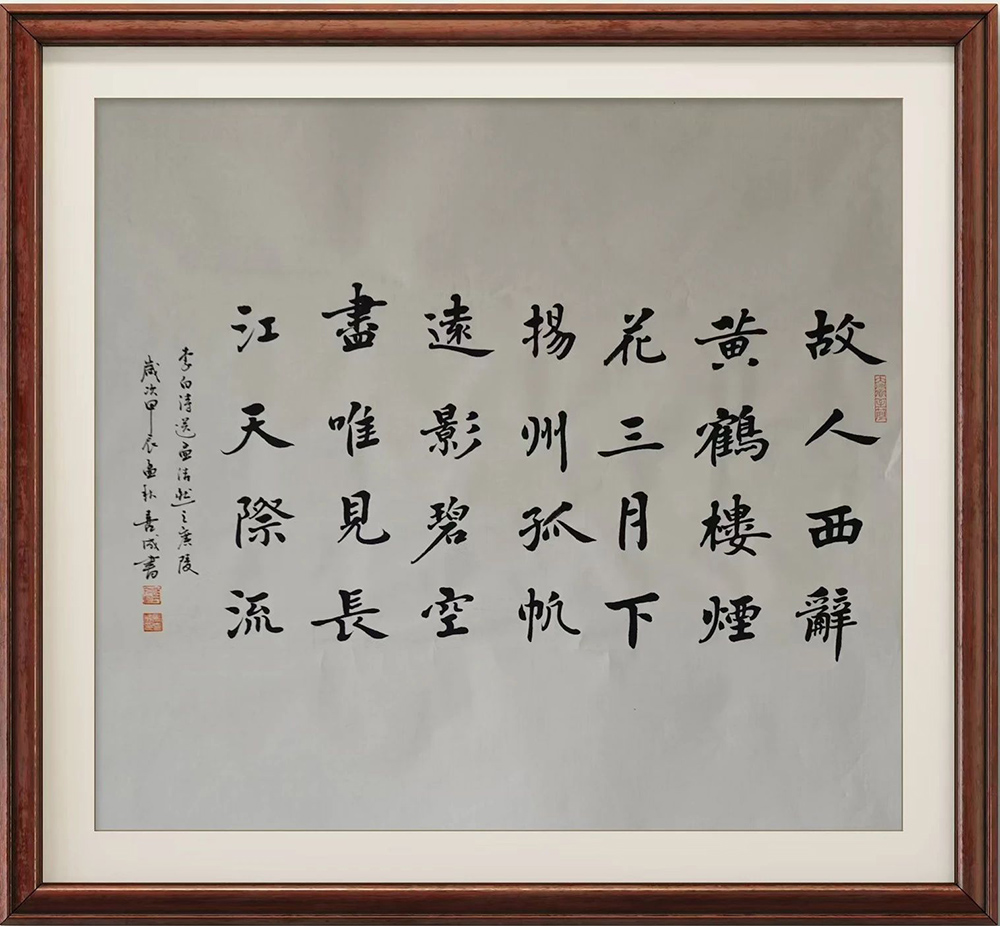 故人西辭
黄鶴樓煙
花三月下
揚州孤帆
遠影碧空
盡唯見長
江天際流
李白詩送孟浩然之廣陵
歲次甲辰孟秋成書